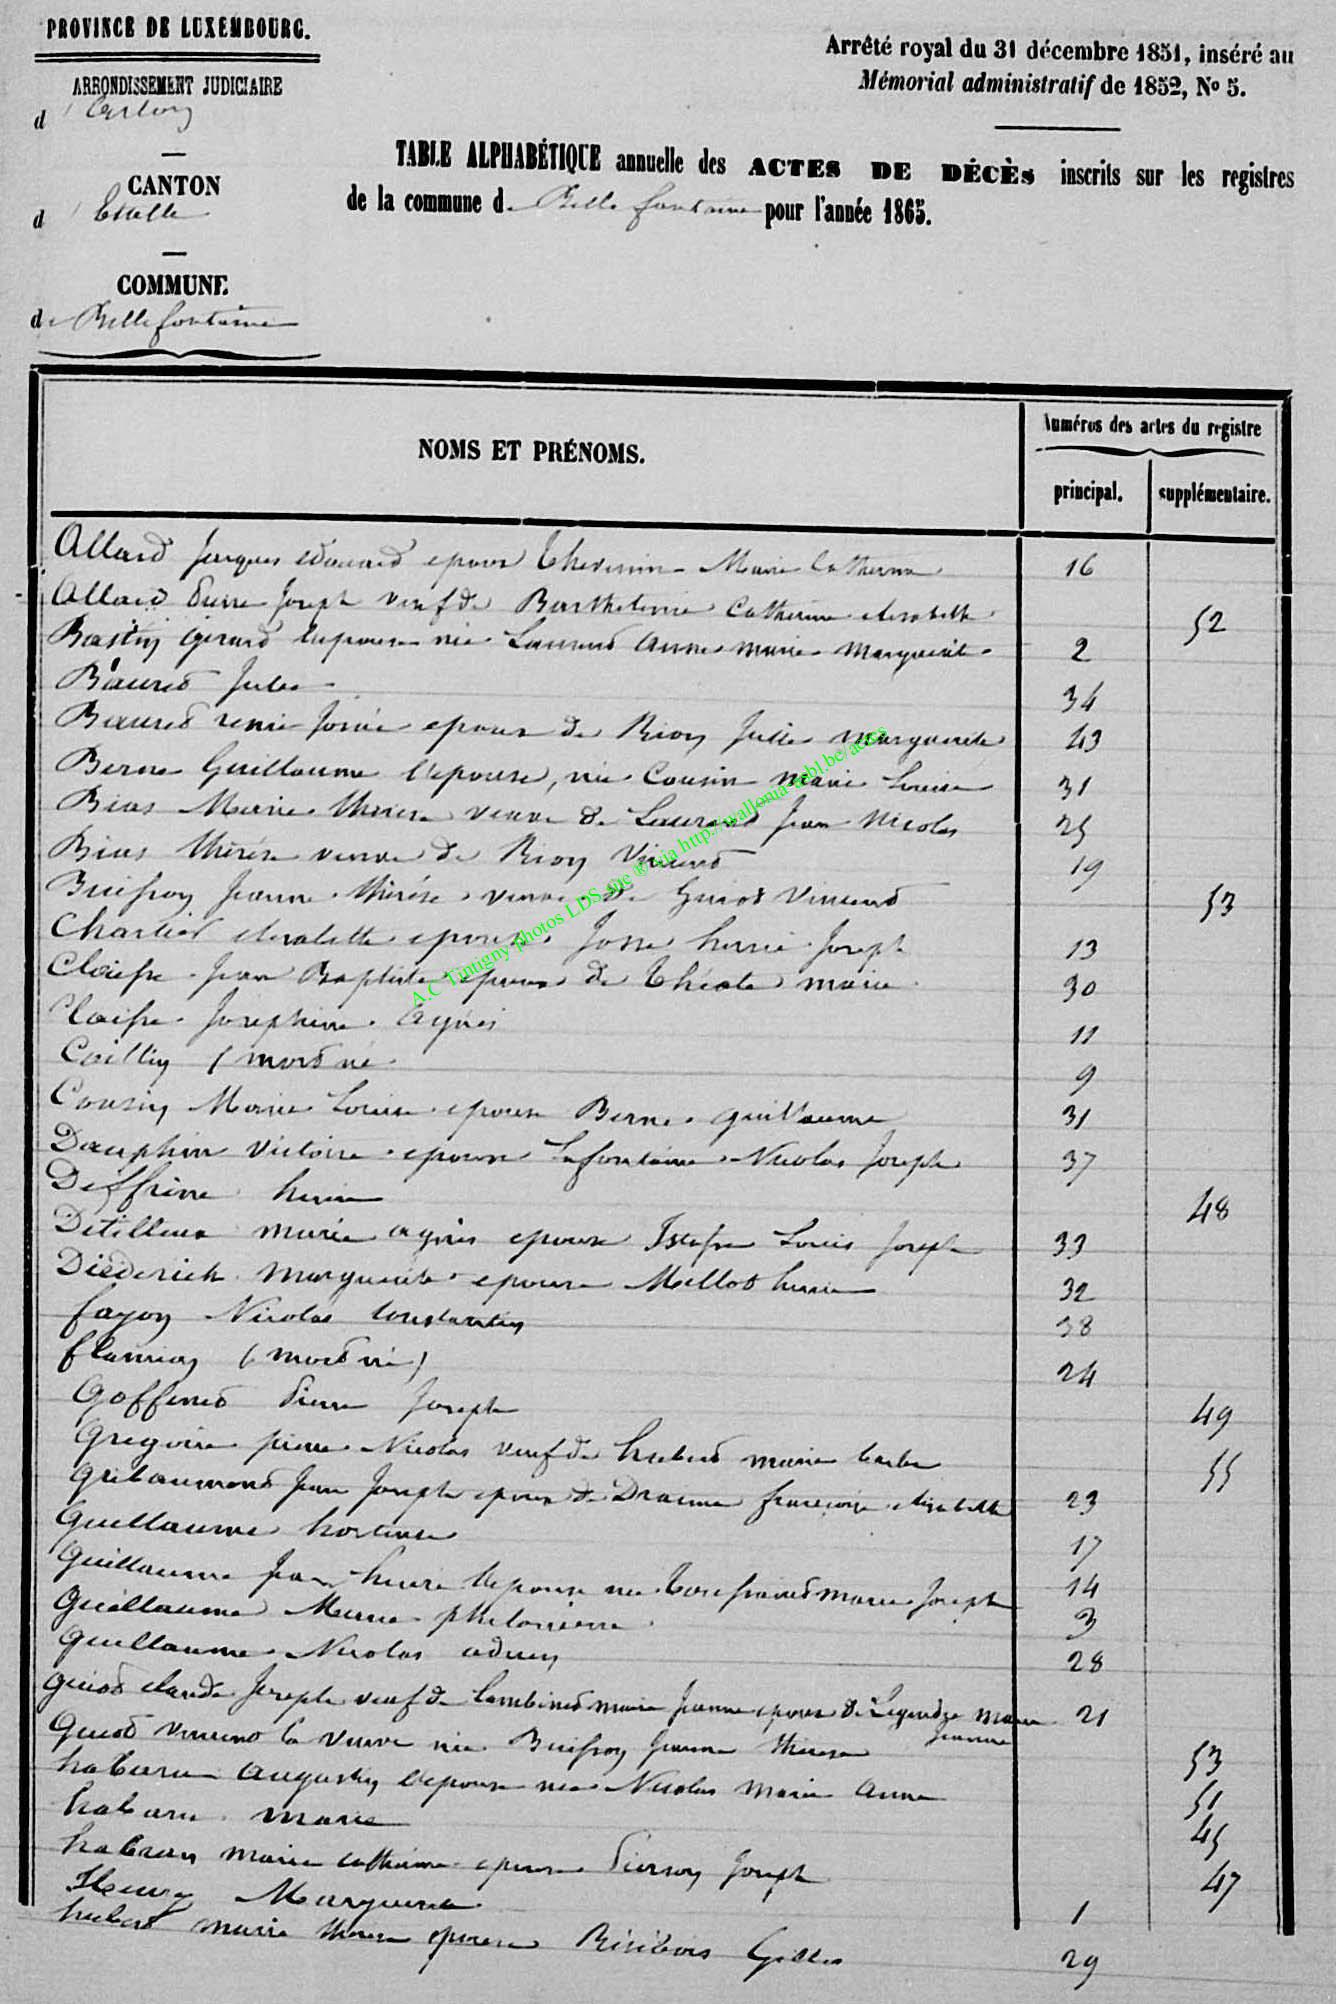 PROVINCE DE LUXEMBOURG.
ARRONDISSEMENT JUDICIAIRE
d'Arlon
CANTON
d'Etalle
COMMUNE
de Bellefontaine
Arrêté royal du 31 décembre 1851, inséré au
Mémorial administratif de 1852, No 5.
TABLE ALPHABÉTIQUE annuelle des ACTES DE DÉCÈS inscrits sur les registres
de la commune de Bellefontaine pour l'année 1865.
NOMS ET PRÉNOMS.
Numéros des actes du registre
principal. supplémentaire.
Allard Jacques edouard epoux Thevenin Marie Catherine 16
Allard Pierre Joseph veuf de Barthelemi Catherine elisabeth 52
Bastin Gérard l'epouse née Laurend Anne marie Marguerite 2
Baured Jules 34
Baured remi Josué epoux de Rion Julie marguerite 43
Berne Guillaume l'epouse, née Cousin marie Louise 31
Bias Marie therese veuve de Laurend Jean Nicolas 25
Bias thérèse veuve de Rion Vincend 19
Buisson Jeanne thérèse veuve de Guiod Vincend 53
Charlier elisabeth epouse Josse henri Joseph 13
Claisse Jean Baptiste epoux de Théate marie 30
Claisse Josephine Agnès 11
Collin (mord né 9
Cousin Marie Louise epouse Berne guillaume 31
Dauphin victoire epouse Lafontaine Nicolas Joseph 37
Deffrène henri 48
Detilleux marie agnès epouse Isaïe Louis Joseph 33
Diederich marguerite epouse Mellod henri 32
fayon Nicolas Constantin 38
flamion (mord né) 24
Goffined Pierre Joseph 49
Gregoire pierre Nicolas veuf de hubert marie barbe 55
Gribaumond Jean Joseph epoux de Draime françoise elisabeth 23
Guillaume hortense 17
Guillaume Jean henri l'epouse née marie Joseph 14
Guillaume Marie philomène 3
Guillaume Nicolas adrien 28
Guiod claude Joseph veuf de Lambined marie Jeanne epoux de marie Jeanne 21
Guiod vincend la veuve née Buisson Jeanne therese 53
habaru Augustin l'epouse née Nicolas marie Anne 51
habaru marie 45
habran marie catherine epouse Pierson Joseph 47
Henry Marguerite 1
hubert marie therese epouse Gilles 29
A.C Tintigny photos LDS, inc ® via http://wallonia-asbl.be/actes